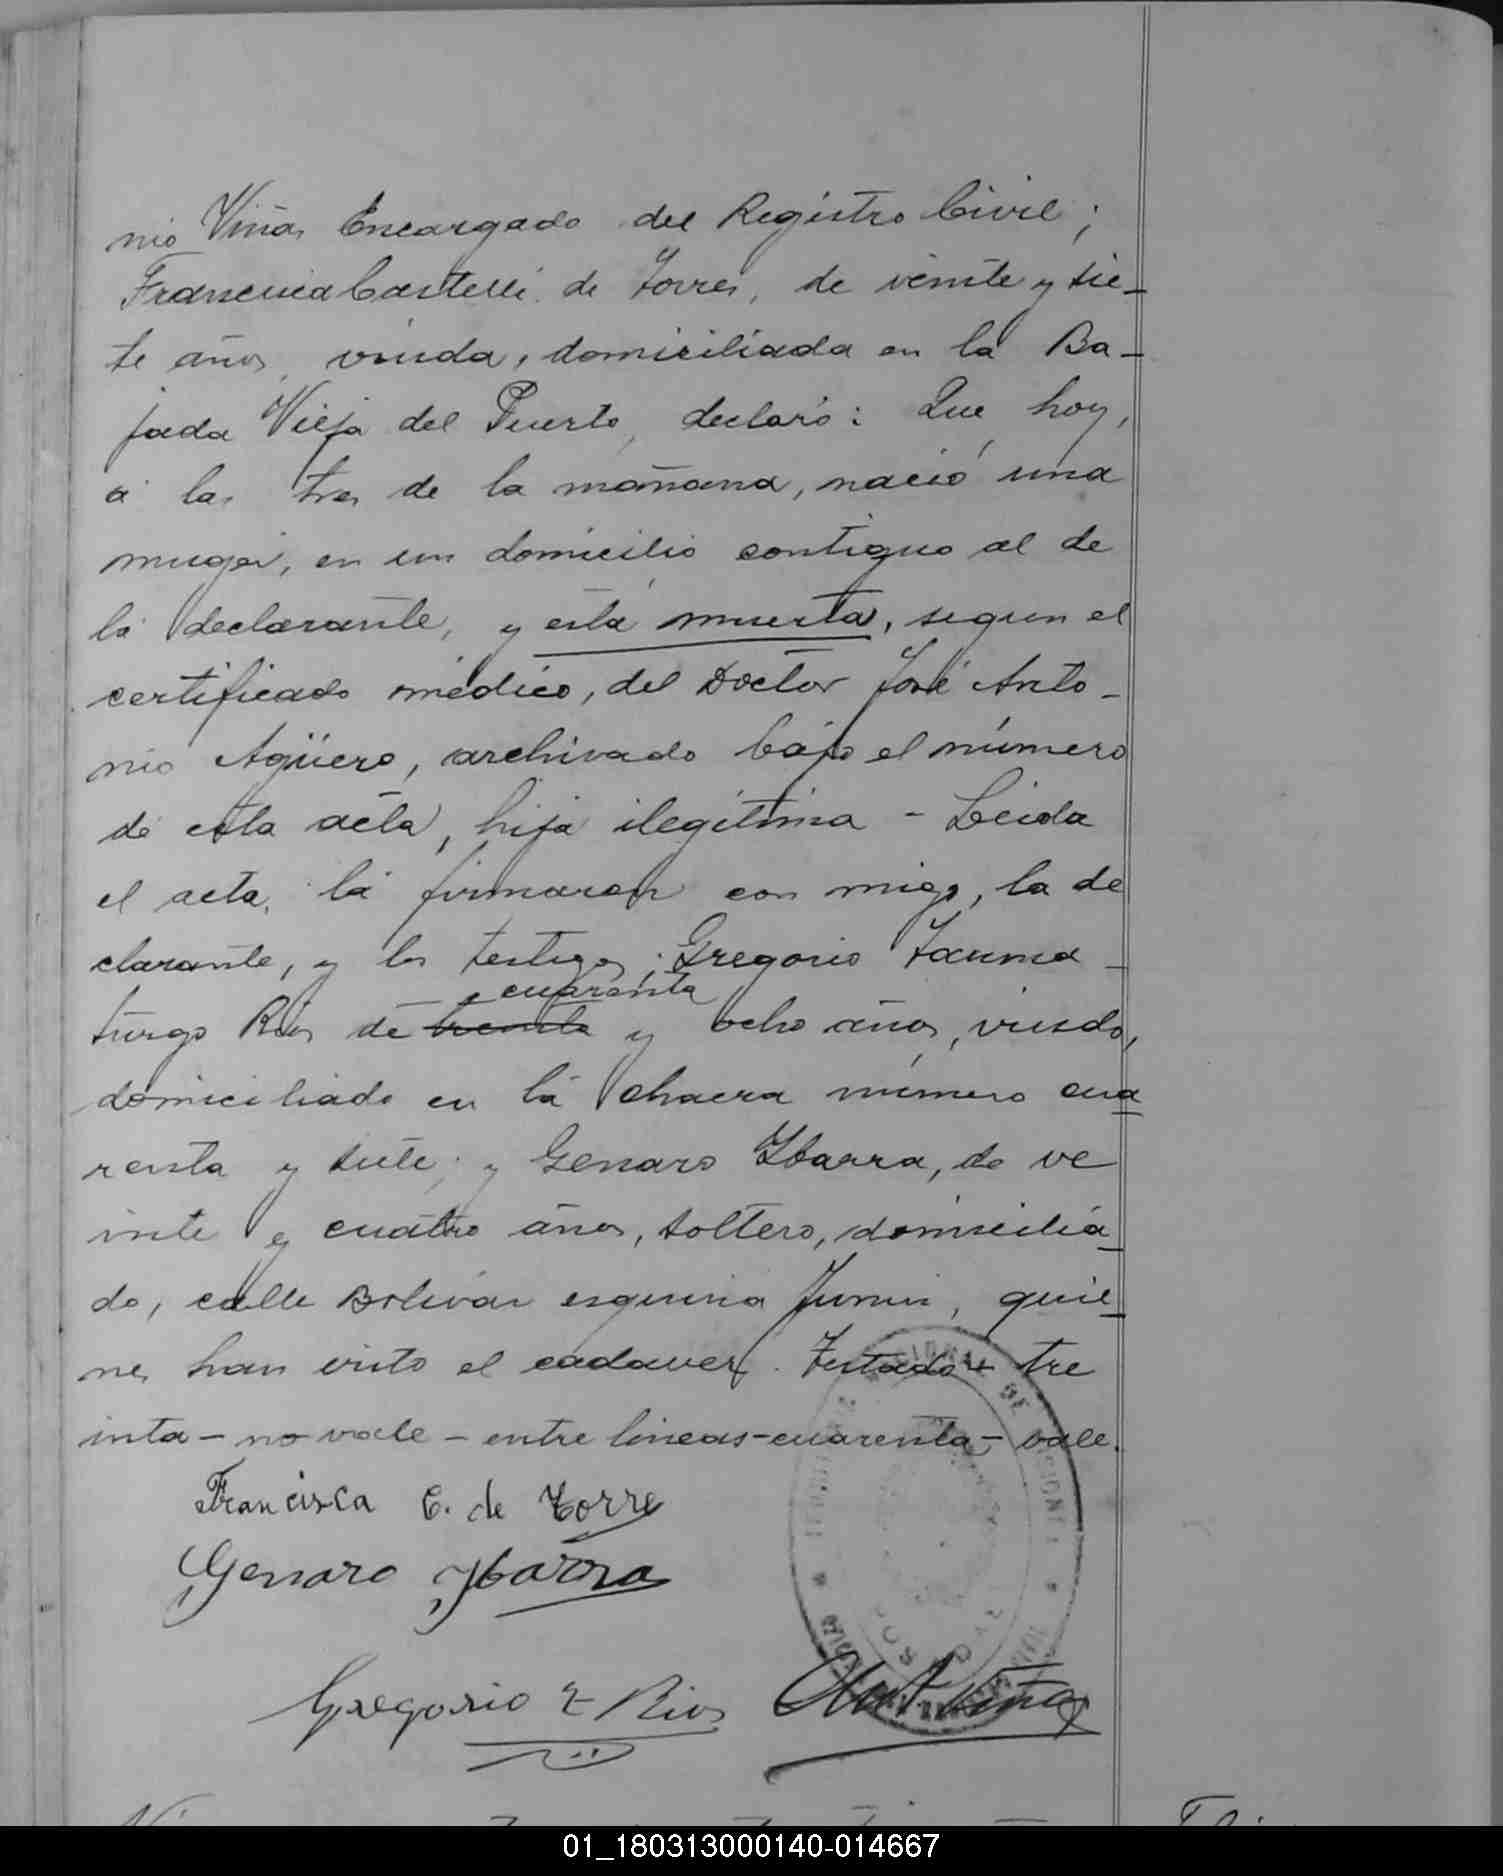 nio Viñas Encargado del Registro Civil;
Francisca Castelli de Torres, de veinte y sie-
te años, viuda, domiciliada en la Ba-
jada Vieja del Puerto, declaró: Que hoy,
á las tres de la mañana, nació una
muger, en un domicilio contiguo al de
la declarante, y está muerta, segun el
certificado médico, del Doctor José Anto-
nio Agüero, archivado bajo el número
de esta acta, hija ilegítima - Leida
el acta, la firmaron con migo, la de
clarante, y los testigos; Gregorio Tauma-
cuarenta
turgo Rios de treinta y ocho años, viudo,
domiciliado en la chacra número cua
renta y siete; y Genaro Ybarra, de ve
inte y cuatro años, soltero, domicilia-
do, calle Bolivar esquina Junin, quie-
nes han visto el cadaver. Testado - tre
inta - no vale - entre lineas - cuarenta - vale.
Francisca C. de Torre
Genaro Ybarra
Gregorio T Rios
Viñas
01_180313000140-014667